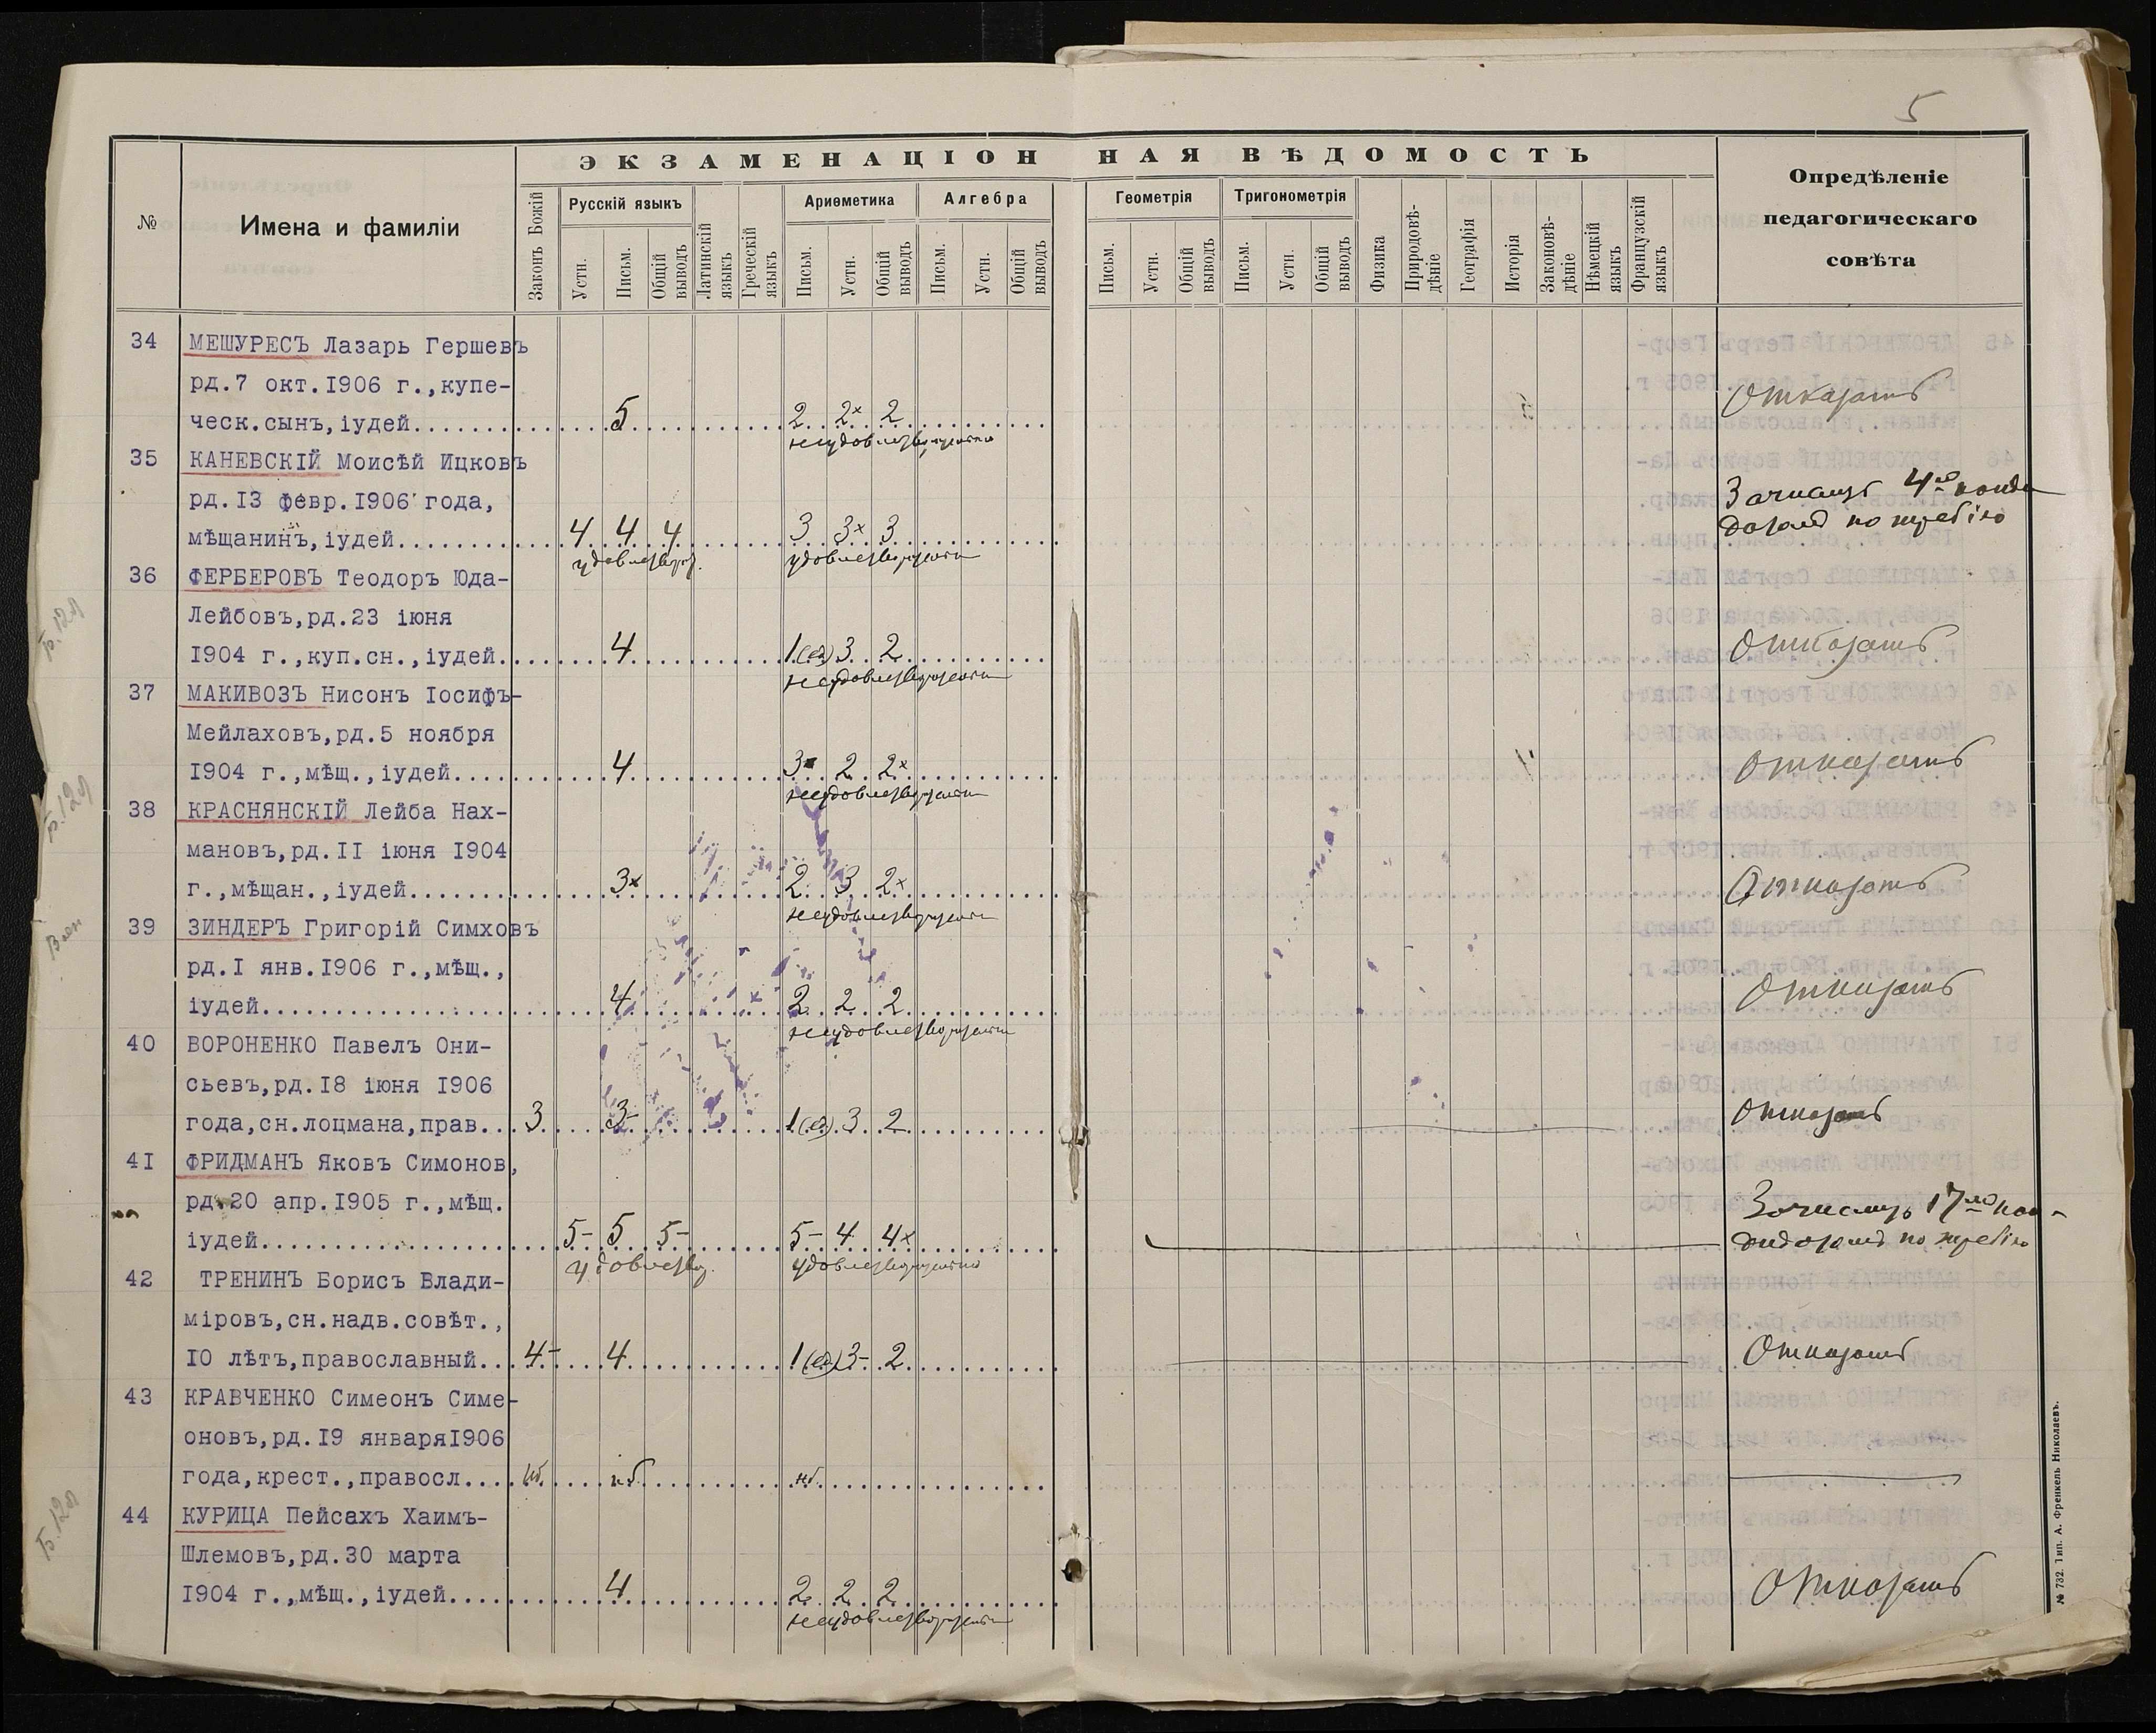 5
ЭКЗАМЕНАЦІОННАЯ ВѢДОМОСТЬ
№
Имена и фамиліи
Законъ Божій
Русскій языкъ
Устн.
Письм.
Общій выводъ
Латинскій языкъ
Греческій языкъ
Ариѳметика
Письм.
Устн.
Общій выводъ
Алгебра
Письм.
Устн.
Общій выводъ
Геометрія
Письм.
Устн.
Общій выводъ
Тригонометрія
Письм.
Устн.
Общій выводъ
Физика
Природовѣ-
дѣніе
Географія
Исторія
Законовѣ-
дѣніе
Нѣмецкій языкъ
Французскій языкъ
Опредѣленіе
педагогическаго
совѣта
34 МЕШУРЕСЪ Лазарь Гершевъ
рд.7 окт.1906 г.,купе-
Отказать
ческ.сынъ,іудей 5 2 2× 2
неудовлетворительно
35 КАНЕВСКІЙ Моисѣй Ицковъ
рд.13 февр.1906 года,
Зачислить 4-й канди
датъ по жребію
мѣщанинъ,іудей 4 4 4 3 3× 3
удовлетвор. удовлетворительно
36 ФЕРБЕРОВЪ Теодоръ Юда-
Лейбовъ,рд.23 іюня
1904 г.,куп.сн.,іудей 4 1(ед) 3 2 Отказать
неудовлетворительно
37 МАКИВОЗЪ Нисонъ Іосифъ-
Мейлаховъ,рд.5 ноября
1904 г.,мѣщ.,іудей 4 3 2 2× Отказать
неудовлетворительно
38 КРАСНЯНСКІЙ Лейба Нах-
мановъ,рд.11 іюня 1904
г.,мѣщан.,іудей 3× 2 3 2× Отказать
неудовлетворительно
39 ЗИНДЕРЪ Григорій Симховъ
рд.1 янв.1906 г.,мѣщ.,
іудей 4 2 2 2 Отказать
неудовлетворительно
40 ВОРОНЕНКО Павелъ Они-
сьевъ,рд.18 іюня 1906
года,сн.лоцмана,прав. 3 3- 1(ед) 3 2 Отказать
41 ФРИДМАНЪ Яковъ Симонов,
рд.20 апр.1905 г.,мѣщ.
Зачислить 17-й кан-
дидатъ по жребію
іудей 5- 5 5- 5- 4 4×
удовлетвор. удовлетворительно
42 ТРЕНИНЪ Борисъ Влади-
міровъ,сн.надв.совѣт.,
10 лѣтъ,православный 4- 4 1(ед) 3- 2 Отказать
43 КРАВЧЕНКО Симеонъ Симе-
оновъ,рд.19 января1906
года,крест.,правосл. нб. нб. нб.
44 КУРИЦА Пейсахъ Хаимъ-
Шлемовъ,рд.30 марта
1904 г.,мѣщ.,іудей 4 2 2 2 Отказать
неудовлетворительно
№ 732. Тип. А. Френкель Николаевъ.